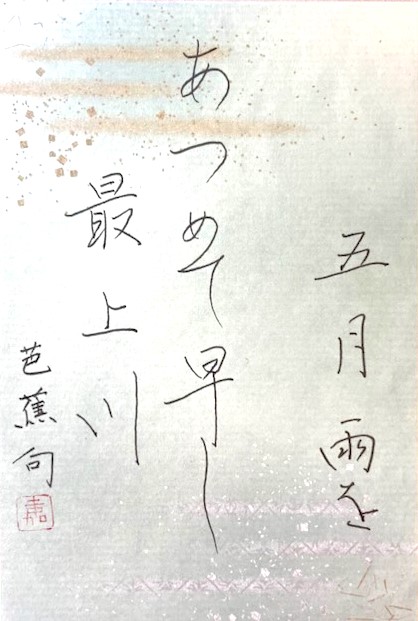 五月雨を
あつめて早し
最上川
芭蕉句
嘉